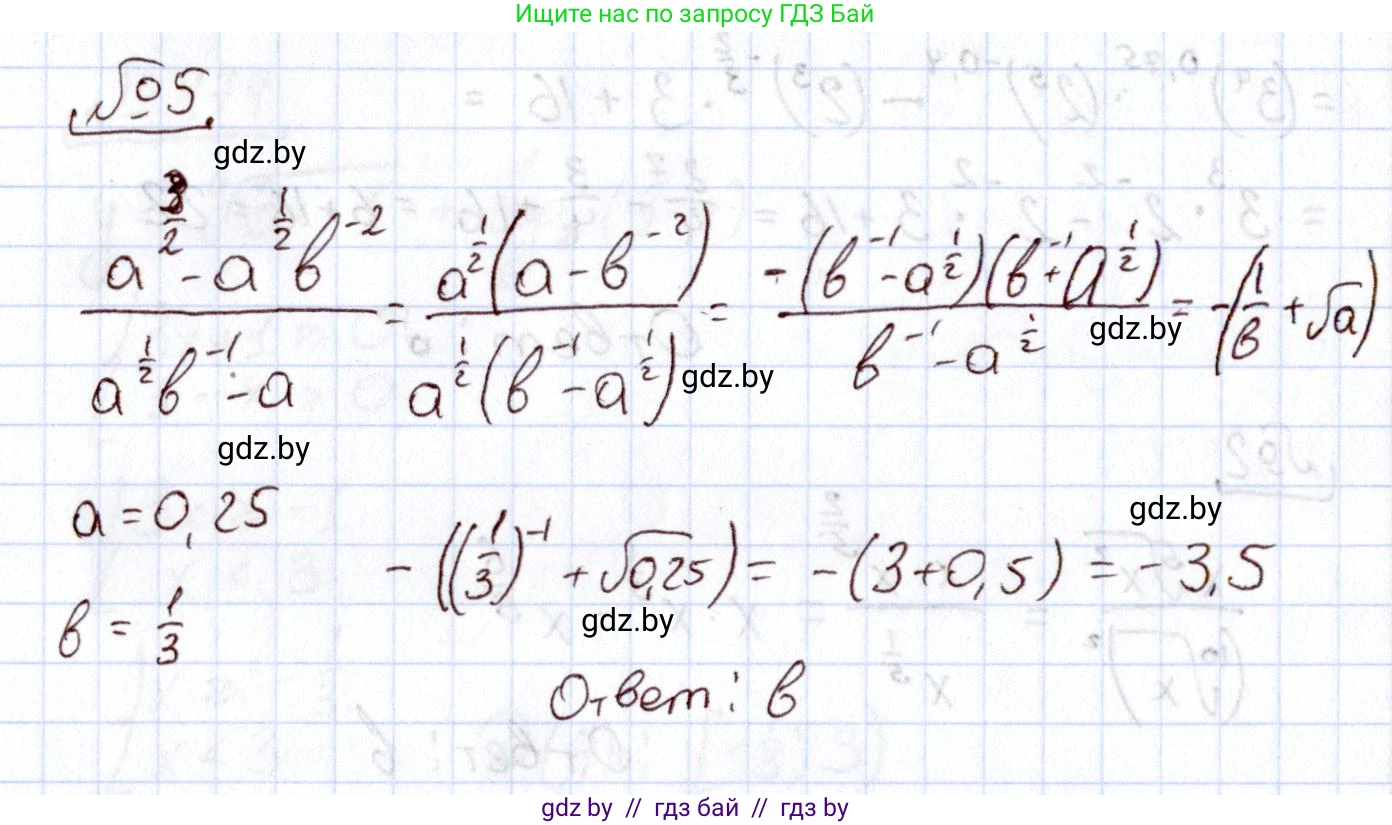 Ищите нас по запросу ГДЗ Бай
№5
gdz.by
(a^(3/2) - a^(1/2) в^(-2)) / (a^(1/2) в^(-1) - a) = (a^(1/2) (a - в^(-2))) / (a^(1/2) (в^(-1) - a^(1/2))) = (-(в^(-1) - a^(1/2)) (в^(-1) + a^(1/2))) / (в^(-1) - a^(1/2)) = -(1/в + √a)
gdz.by
gdz.by
gdz.by
a = 0,25
gdz.by
-((1/3)^(-1) + √0,25) = -(3+0,5) = -3,5
в = 1/3
gdz.by
Ответ: в
gdz by // гдз бай // гдз by